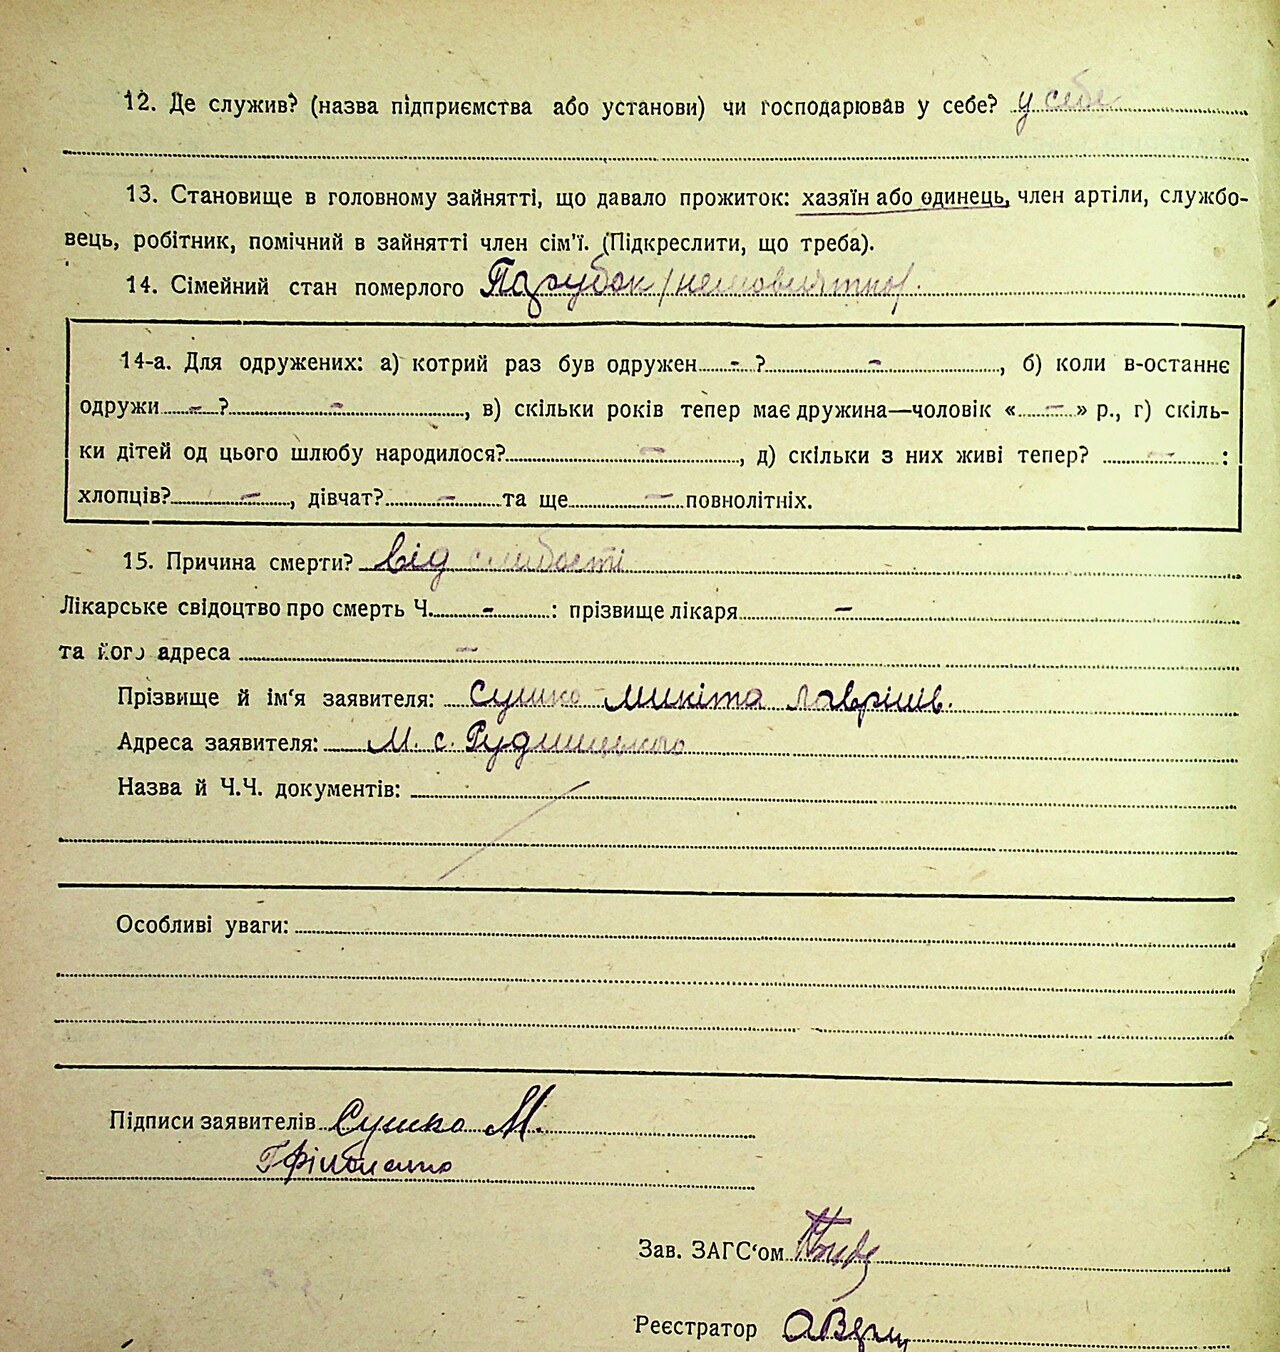 12. Де служив? (назва підприємства або установи) чи господарював у себе? у себе
13. Становище в головному зайнятті, що давало прожиток: хазяїн або одинець, член артіли, службо-
вець, робітник, помічний в зайнятті член сім'ї. (Підкреслити, що треба).
14. Сімейний стан померлого Парубок
14-а. Для одружених: а) котрий раз був одружен - ? -, б) коли в-останнє
одружи - ? -, в) скільки років тепер має дружина—чоловік « - » р., г) скіль-
ки дітей од цього шлюбу народилося? -, д) скільки з них живі тепер? - :
хлопців? -, дівчат? - та ще - повнолітніх.
15. Причина смерти? від слабости
Лікарське свідоцтво про смерть Ч. - : прізвище лікаря -
та його адреса -
Прізвище й ім'я заявителя: Сушко Микіта Лаврінів.
Адреса заявителя: М. с. Рудницького
Назва й Ч.Ч. документів:
Особливі уваги:
Підписи заявителів Сушко М.
Зав. ЗАГС'ом
Реєстратор